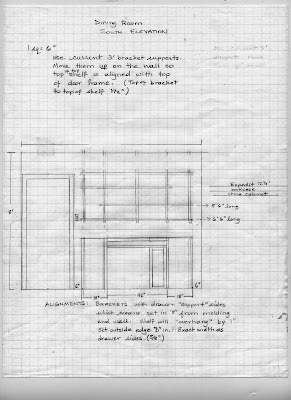 Dining Room
SOUTH ELEVATION
1 sq = 6"
use current 3' bracket supports.
Move them up on the wall so
top shelf is aligned with top
of door frame. (Top of bracket
to top of shelf
Expedit
bookcase
5'6" long
6'6" long
8'
18"
18"
ALIGNMENTS: BRACKETS with drawer "support" sides
which means set in "8" from molding
and wall. Shelf will "overhang" by 1"
Set outside edge "D" in. Exact width as
drawer sides. (5/8")